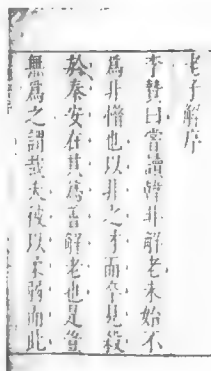 老子解序
李贄曰嘗讀韓非解老未始不
為非惜也以非之才而卒見殺
於秦安在其為善解老也是豈
無為之謂哉夫彼以柔弱而此